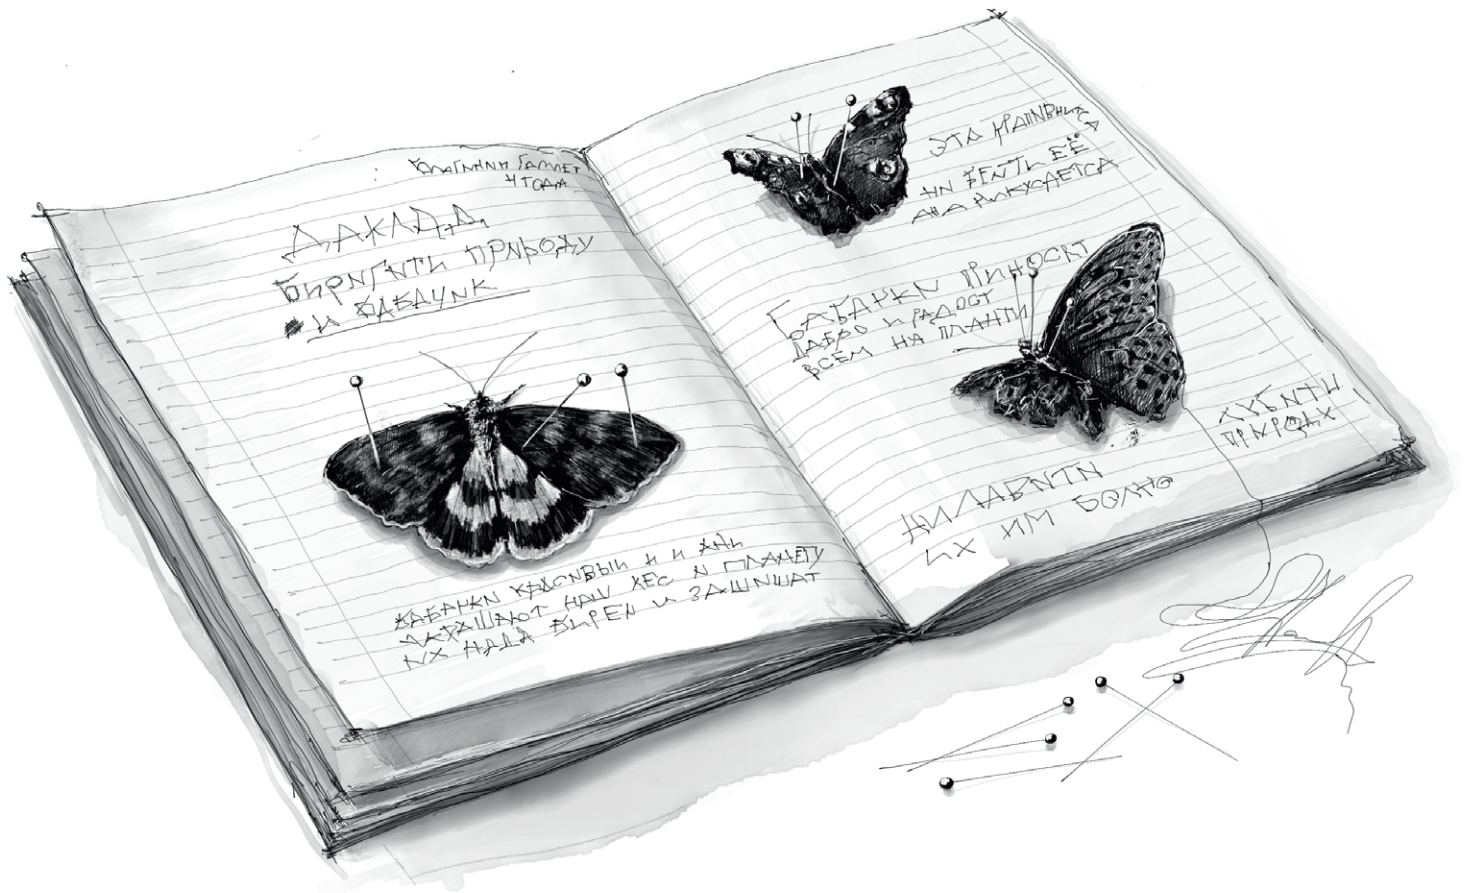 ГАМЛЕТ
ДАКЛАД
БИРИГИТИ ПРИРОДУ
И БАБАЧИК
БАБАЧКИ КРАСИВЫИ И АНИ
УКРАШАЮТ НАШ ЛЕС И ПЛАНЕТУ
ИХ НАДА БИРЕЧ И ЗАЩИЩАТ
ЭТА КРАПИВНИЦА
НИ БЕЙТИ ЕЁ
АНА НИ КУСАЕТСА
БАБАЧКИ ПРИНОСЯТ
ДАБРО И РАДОСТ
ВСЕМ НА ПЛАНТИ
ЛУБИТИ
ПРИРОДУ
НИ ЛАВИТИ
ИХ ИМ БОЛНО